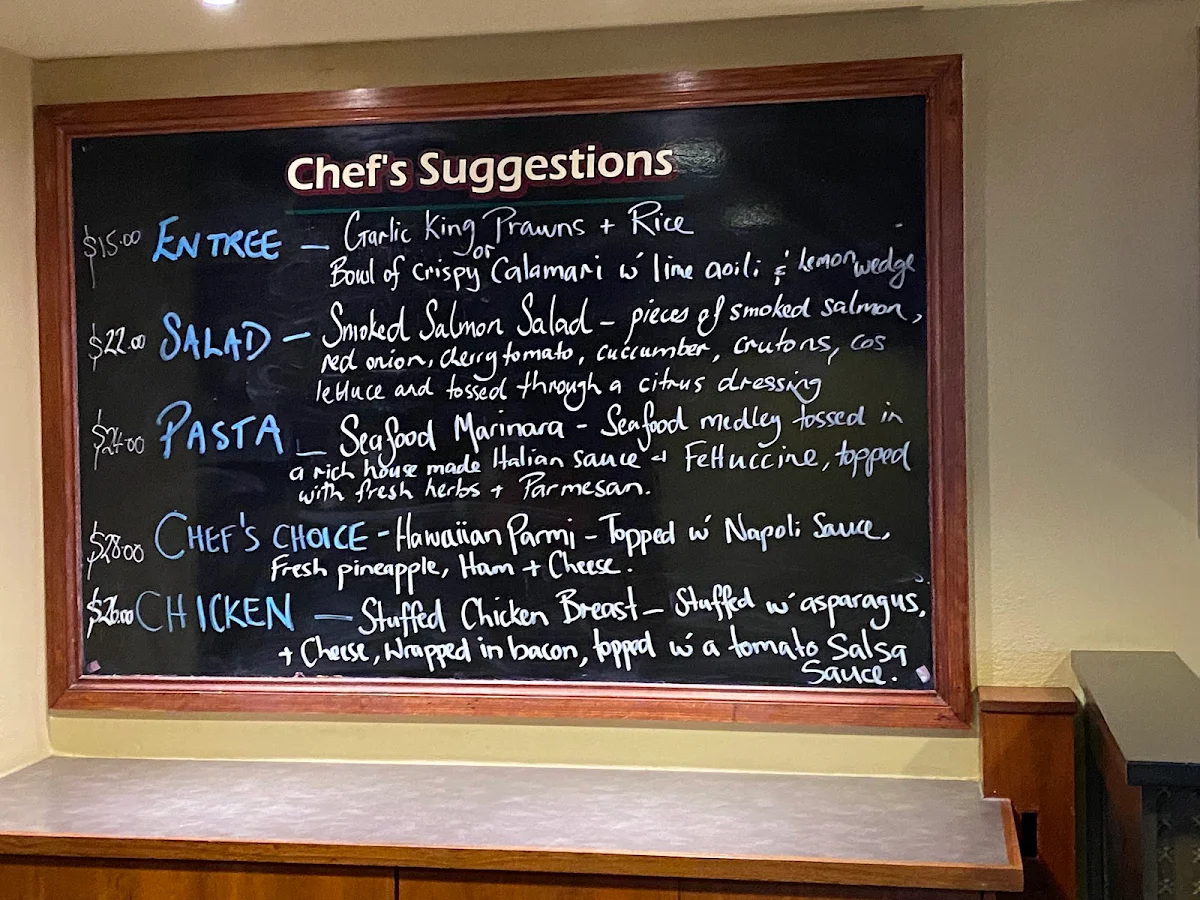 Chef's Suggestions
$15.00 ENTREE — Garlic King Prawns + Rice
or
Bowl of crispy Calamari w' lime aoili & lemon wedge
$22.00 SALAD — Smoked Salmon Salad - pieces of smoked salmon,
red onion, cherry tomato, cuccumber, crutons, cos
lettuce and tossed through a citrus dressing
$24.00 PASTA — Seafood Marinara - Seafood medley tossed in
a rich house made Italian sauce + Fettuccine, topped
with fresh herbs + Parmesan.
$28.00 CHEF'S CHOICE - Hawaiian Parmi - Topped w' Napoli Sauce,
Fresh pineapple, Ham + Cheese.
$26.00 CHICKEN — Stuffed Chicken Breast - Stuffed w' asparagus,
+ Cheese, Wrapped in bacon, topped w' a tomato Salsa
Sauce.